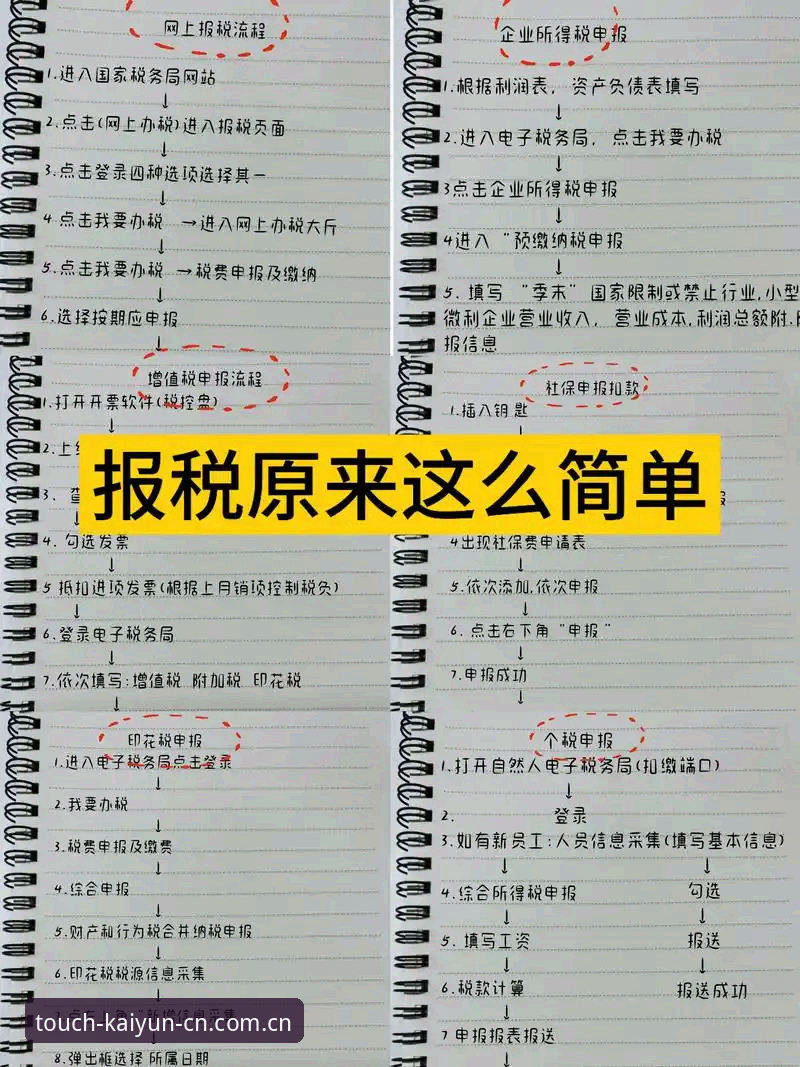 网上报税流程
1.进入国家税务局网站
↓
2.点击(网上办税)进入报税页面
↓
3.点击登录四种选项选择其一
↓
4.点击我要办税 →进入网上办税大厅
↓
5.点击我要办税 →税费申报及缴纳
↓
6.选择按期应申报
↓
企业所得税申报
1.根据利润表，资产负债表填写
↓
2.进入电子税务局，点击我要办税
↓
3点击企业所得税申报
↓
4进入“预缴纳税申报
↓
5.填写“季末”国家限制或禁止行业,小型
微利企业营业收入，营业成本,利润总额附.
报信息
增值税申报流程
1.打开开票软件(税控盘)
↓
2.上
3.
↓
4.勾选发票
↓
5 抵扣进项发票(根据上月销项控制税负)
↓
6.登录电子税务局
↓
7.依次填写:增值税 附加税 印花税
↓
社保申报扣款
1.插入钥匙
↓
报税原来这么简单
4出现社保费申请表
↓
5.依次添加,依次申报
↓
6.点击右下角“申报”
↓
7.申报成功
↓
印花税申报
1.进入电子税务局点击登录
↓
2.我要办税
↓
3.税费申报及缴费
↓
4.综合申报
↓
5.财产和行为税合并纳税申报
↓
6.印花税税源信息采集
↓
8.弹出框选择 所属日期
个税申报
1.打开自然人电子税务局(扣缴端口)
↓
2. 登录
3.如有新员工:人员信息采集(填写基本信息)
↓ ↓
4.综合所得税申报 勾选
↓ ↓
5.填写工资 报送
↓ ↓
6.税款计算 报送成功
↓
7申报报表报送
↓
touch-kaiyun-cn.com.cn